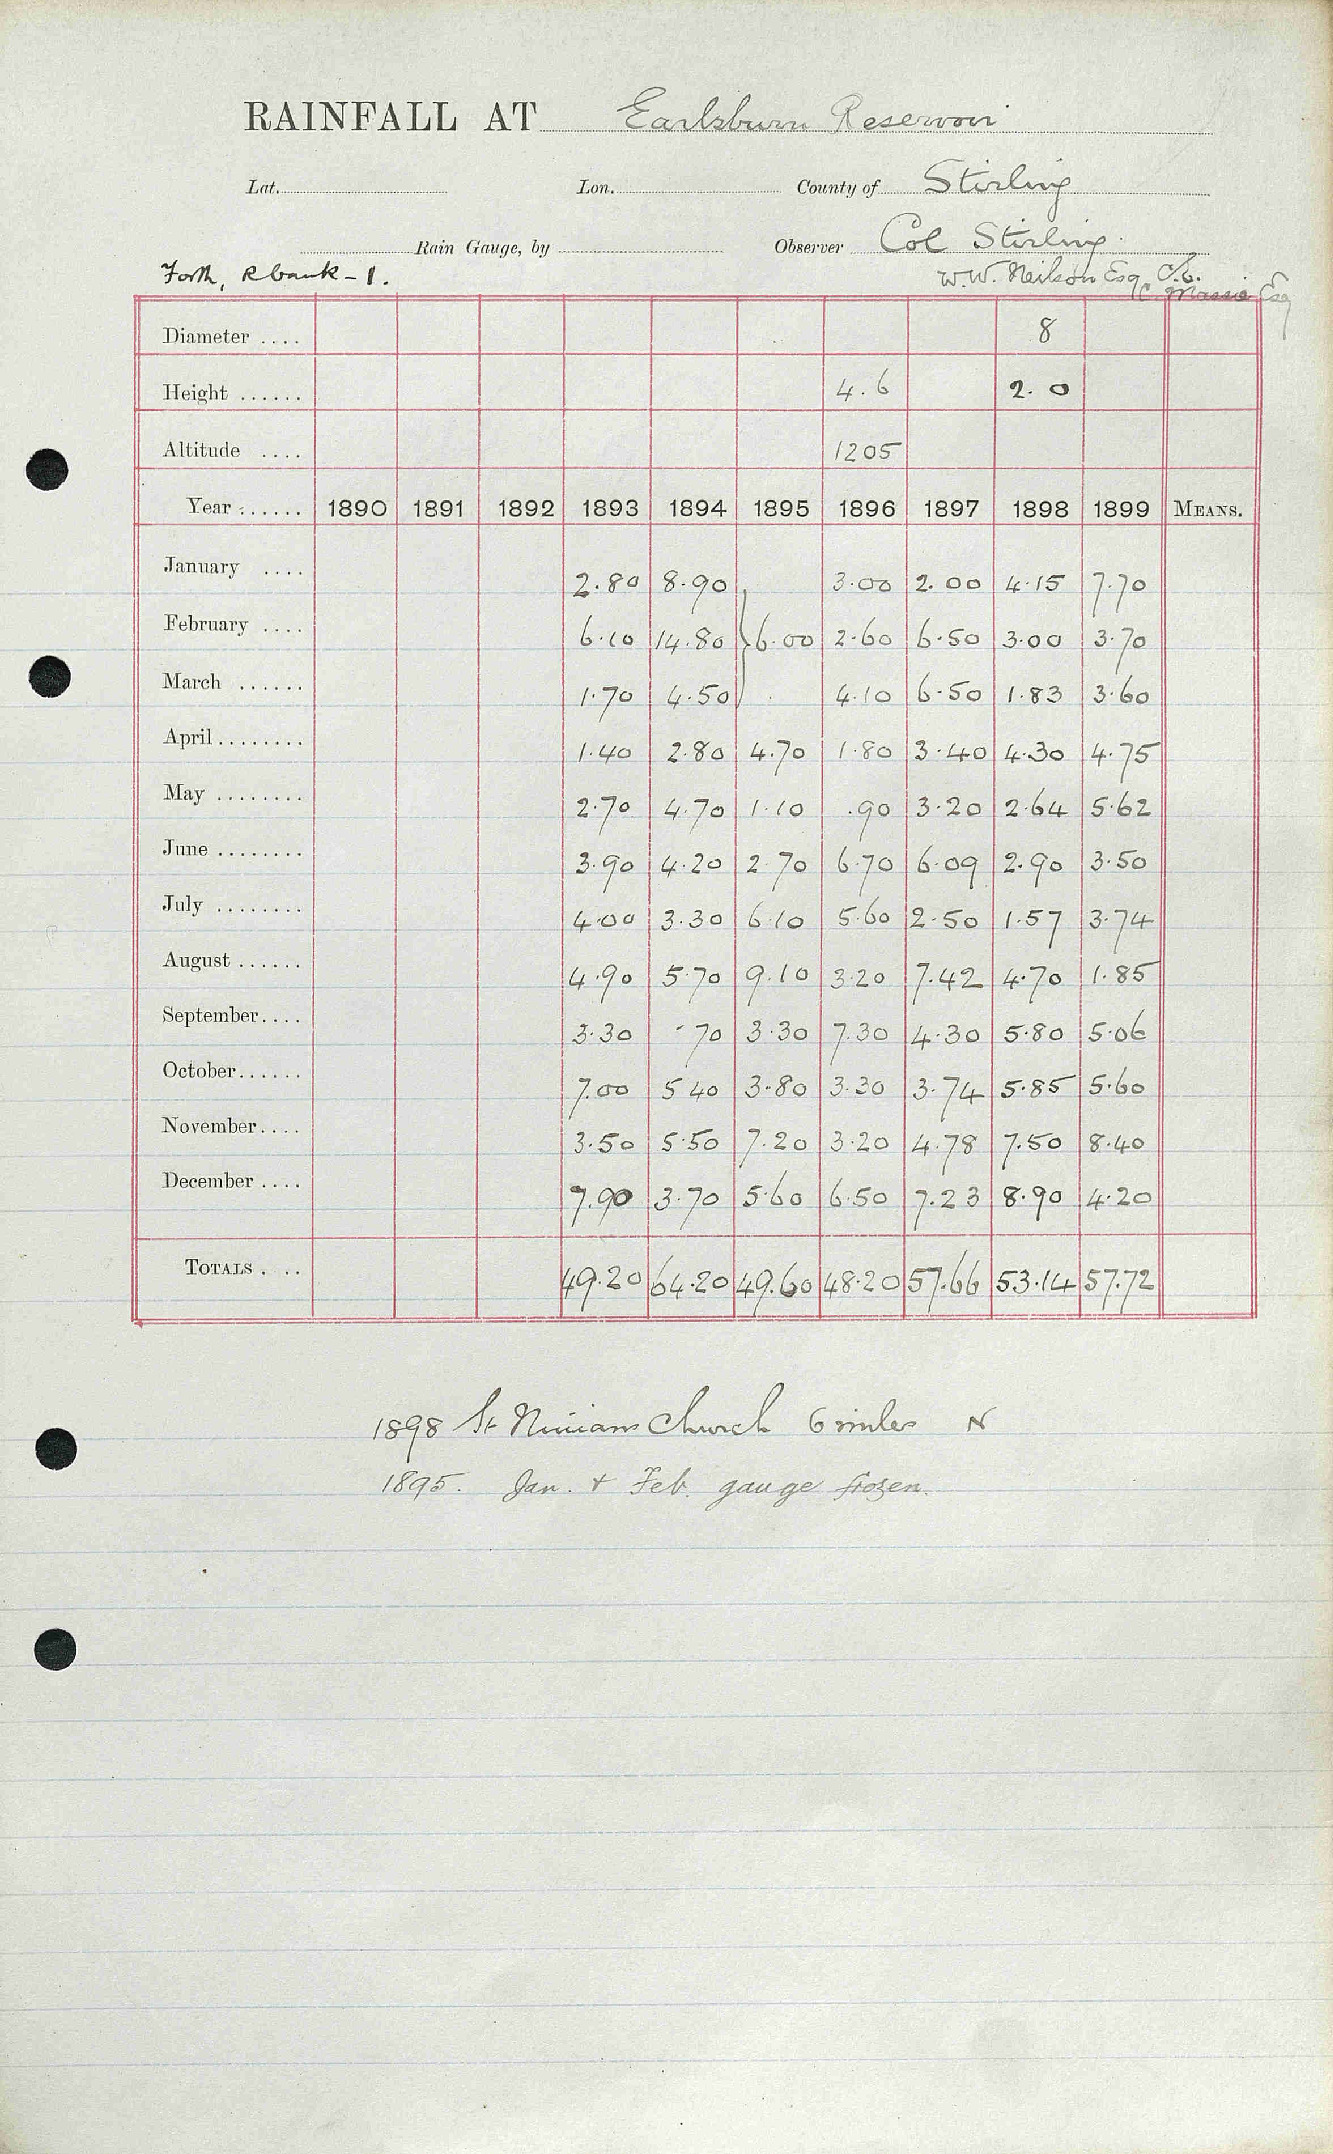 RAINFALL AT Earlsburn Reservoir
Lat. Lon. County of Stirling
Rain Gauge, by Observer Col Stirling.
Forth, R bank - 1. W.W. Neilson Esq C.E.
C. Massie Esq
Diameter .... 8
Height ...... 4.6 2.0
Altitude .... 1205
Year ...... 1890 1891 1892 1893 1894 1895 1896 1897 1898 1899 MEANS.
January .... 2.80 8.90 3.00 2.00 4.15 7.70
February .... 6.10 14.80 } 6.00 2.60 6.50 3.00 3.70
March ...... 1.70 4.50 4.10 6.50 1.83 3.60
April ........ 1.40 2.80 4.70 1.80 3.40 4.30 4.75
May ........ 2.70 4.70 1.10 .90 3.20 2.64 5.62
June ........ 3.90 4.20 2.70 6.70 6.09 2.90 3.50
July ........ 4.00 3.30 6.10 5.60 2.50 1.57 3.74
August ...... 4.90 5.70 9.10 3.20 7.42 4.70 1.85
September .... 3.30 .70 3.30 7.30 4.30 5.80 5.06
October ...... 7.00 5.40 3.80 3.30 3.74 5.85 5.60
November .... 3.50 5.50 7.20 3.20 4.78 7.50 8.40
December .... 7.90 3.70 5.60 6.50 7.23 8.90 4.20
TOTALS .... 49.20 64.20 49.60 48.20 57.66 53.14 57.72
1898 St Ninians Church 6 miles N
1895. Jan. + Feb. gauge frozen.